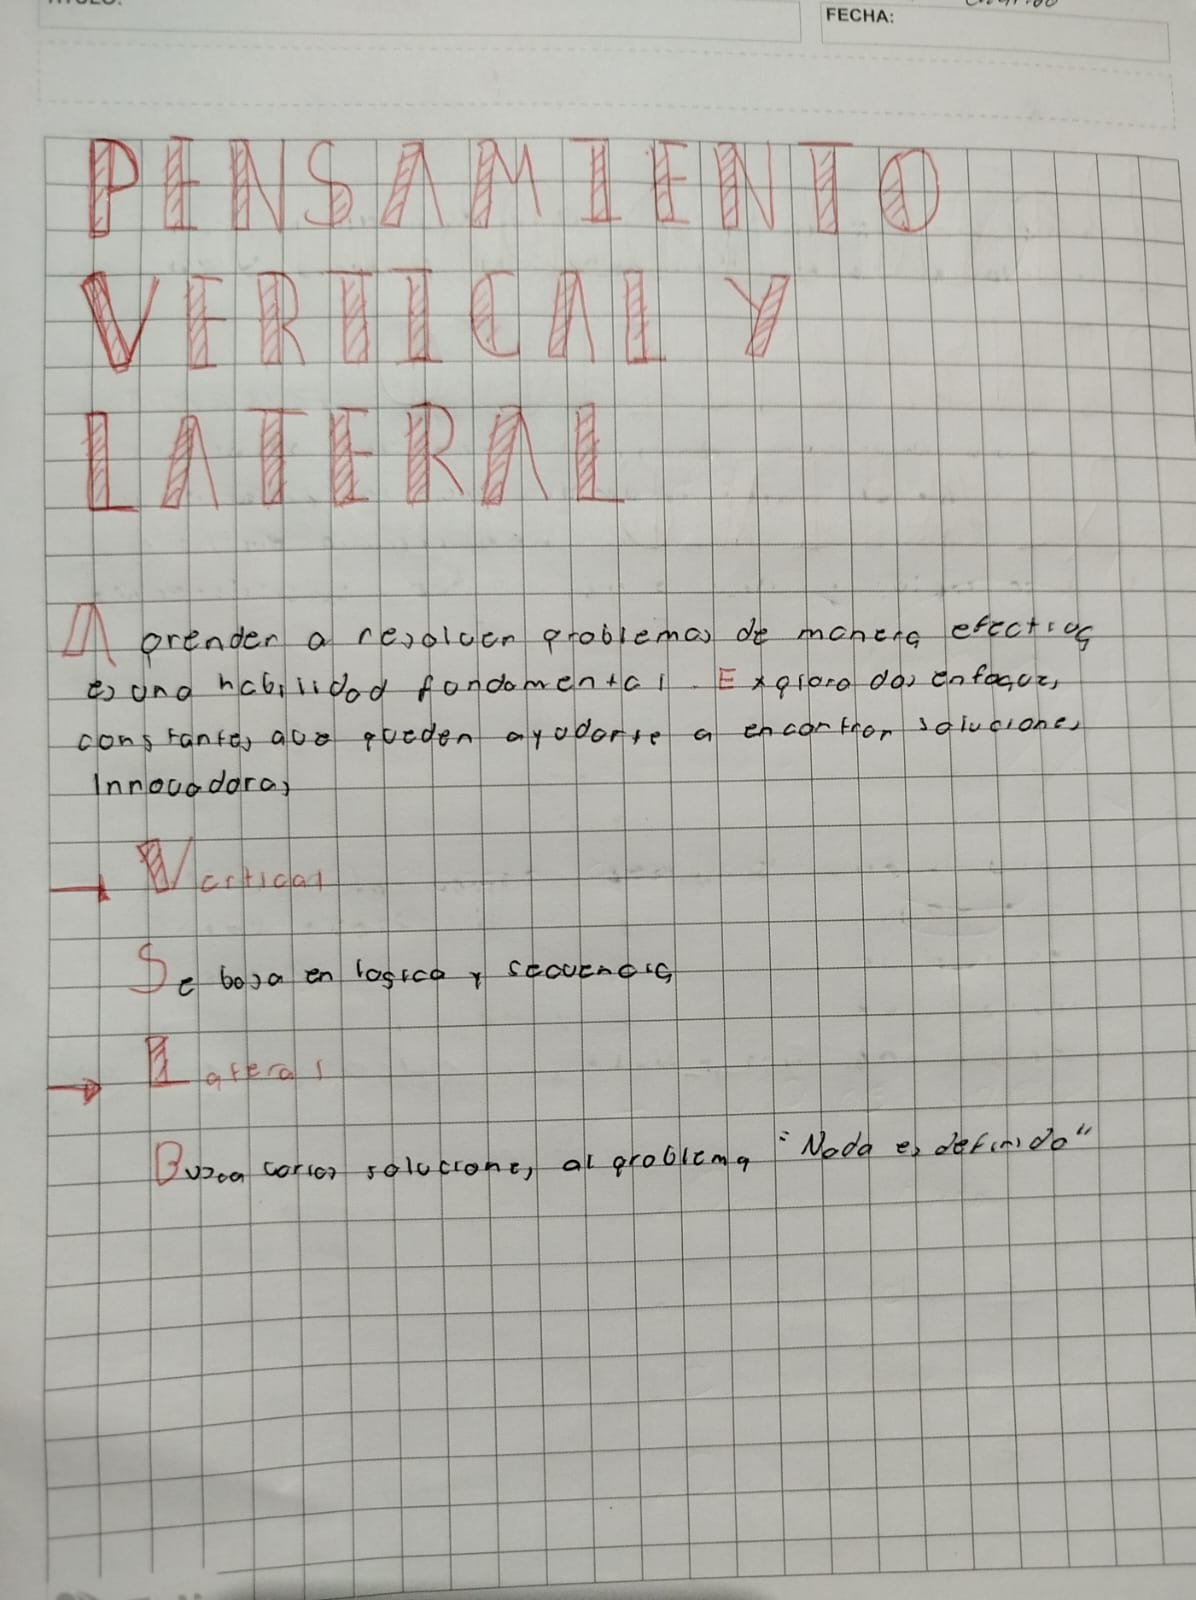 FECHA:
PENSAMIENTO
VERTICAL Y
LATERAL
Aprender a resolver problemas de manera efectiva
es una habilidad fundamental. Exploro dos enfoques
constantes que pueden ayudarte a encontrar soluciones
Innovadoras
Vertical
Se basa en logica y secuencia
Lateral
Busca soluciones al problema "Nada es definido"